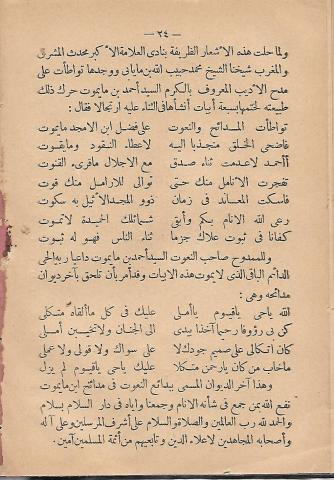 — ٢٤ —
ولما حلت هذه الأشعار الظريفة بنادى العلامة الأكبر محدث المشرق
والمغرب شيخنا الشيخ محمد حبيب الله بن مايابى ووجدها تواطأت على
مدح الأديب المعروف بالكرم السيد أحمد بن مايموت حرك ذلك
طبيعته لختمها بسبعة أبيات أنشأها فى الثناء عليه ارتجالا فقال :
تواطأت المدائح والنعوت على فضل ابن الامجد مايموت
فاضحى الخلق منجذبا اليه لاعطاء النقود وما يقوت
أأحمد لاعدمت ثناء صدق مع الاجلال مافرئ القنوت
تفجرت الأنامل منك حتى توالى للارامل منك قوت
فاسكت المعاند فى زمان ذوو المجد الأثيل به سكوت
رعى الله الانام بكم وأبقى شمائلك الحميدة لاتموت
كفانا فى ثبوت علاك جزما ثناء الناس فهو له ثبوت
وللممدوح صاحب النعوت السيد أحمد بن مايموت داعيا ربه الحى
الدائم الباقى الذى لا يموت هذه الابيات وقد أمر بأن تلحق بآخر ديوان
مدائحه وهى :
الله ياحى ياقيوم ياأملى عليك فى كل ماألقاه متكلى
كن بى رؤوفا رحيما آخذا بيدى الى الجنان ولا تخيبن أملى
كان اتكالى على صميم جودك لا على سواك ولا قولى ولا عملى
ماخاب من كان يارحمن متكلا عليك ياحى ياقيوم لم يزل
وهذا آخر الديوان المسمى ببدائع النعوت فى مدائح ابن مايموت
نفع الله بمن جمع فى شأنه الانام وجمعنا واياه فى دار السلام بسلام
والحمد لله رب العالمين والصلاة والسلام على أشرف المرسلين وعلى آله
وأصحابه المجاهدين لاعلاء الدين وتابعيهم من أئمة المسلمين آمين.